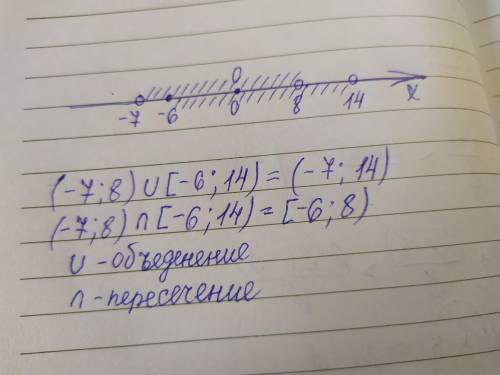 0
-7 -6 0 8 14 x
(-7; 8) ∪ [-6; 14) = (-7; 14)
(-7; 8) ∩ [-6; 14) = [-6; 8)
∪ - объеденение
∩ - пересечение